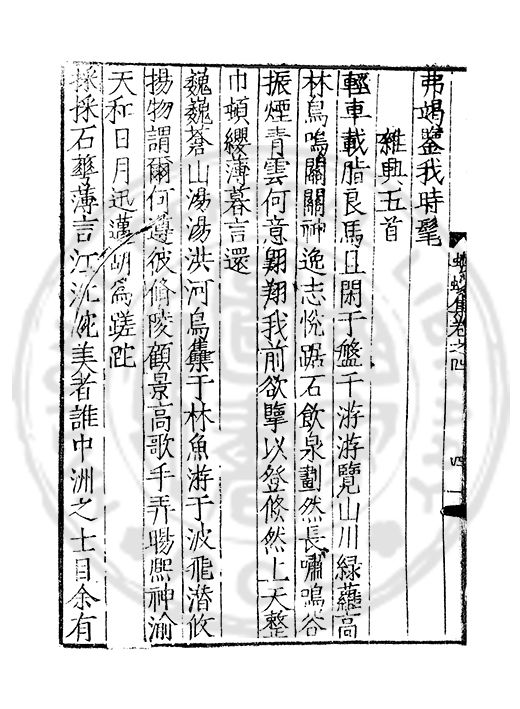 弗竭鉴我時髦
雜興五首
輕車載脂良馬且閑于盤于游游覽山川緑蘿高
林鳥鳴關關神逸志悅踞石飲泉劃然長嘯鳴谷
振煙青雲何意翺翔我前欲擥以登倐然上天整
巾頓纓薄暮言還
巍巍蒼山湯湯洪河鳥集于林魚游于波飛潛攸
揚物謂爾何遵彼脩陵顧景高歌手弄暘熙神渝
天和日月迅邁胡爲蹉跎
採採石華薄言江沱美者誰中洲之士目余有
蠛蠓集卷之四
四